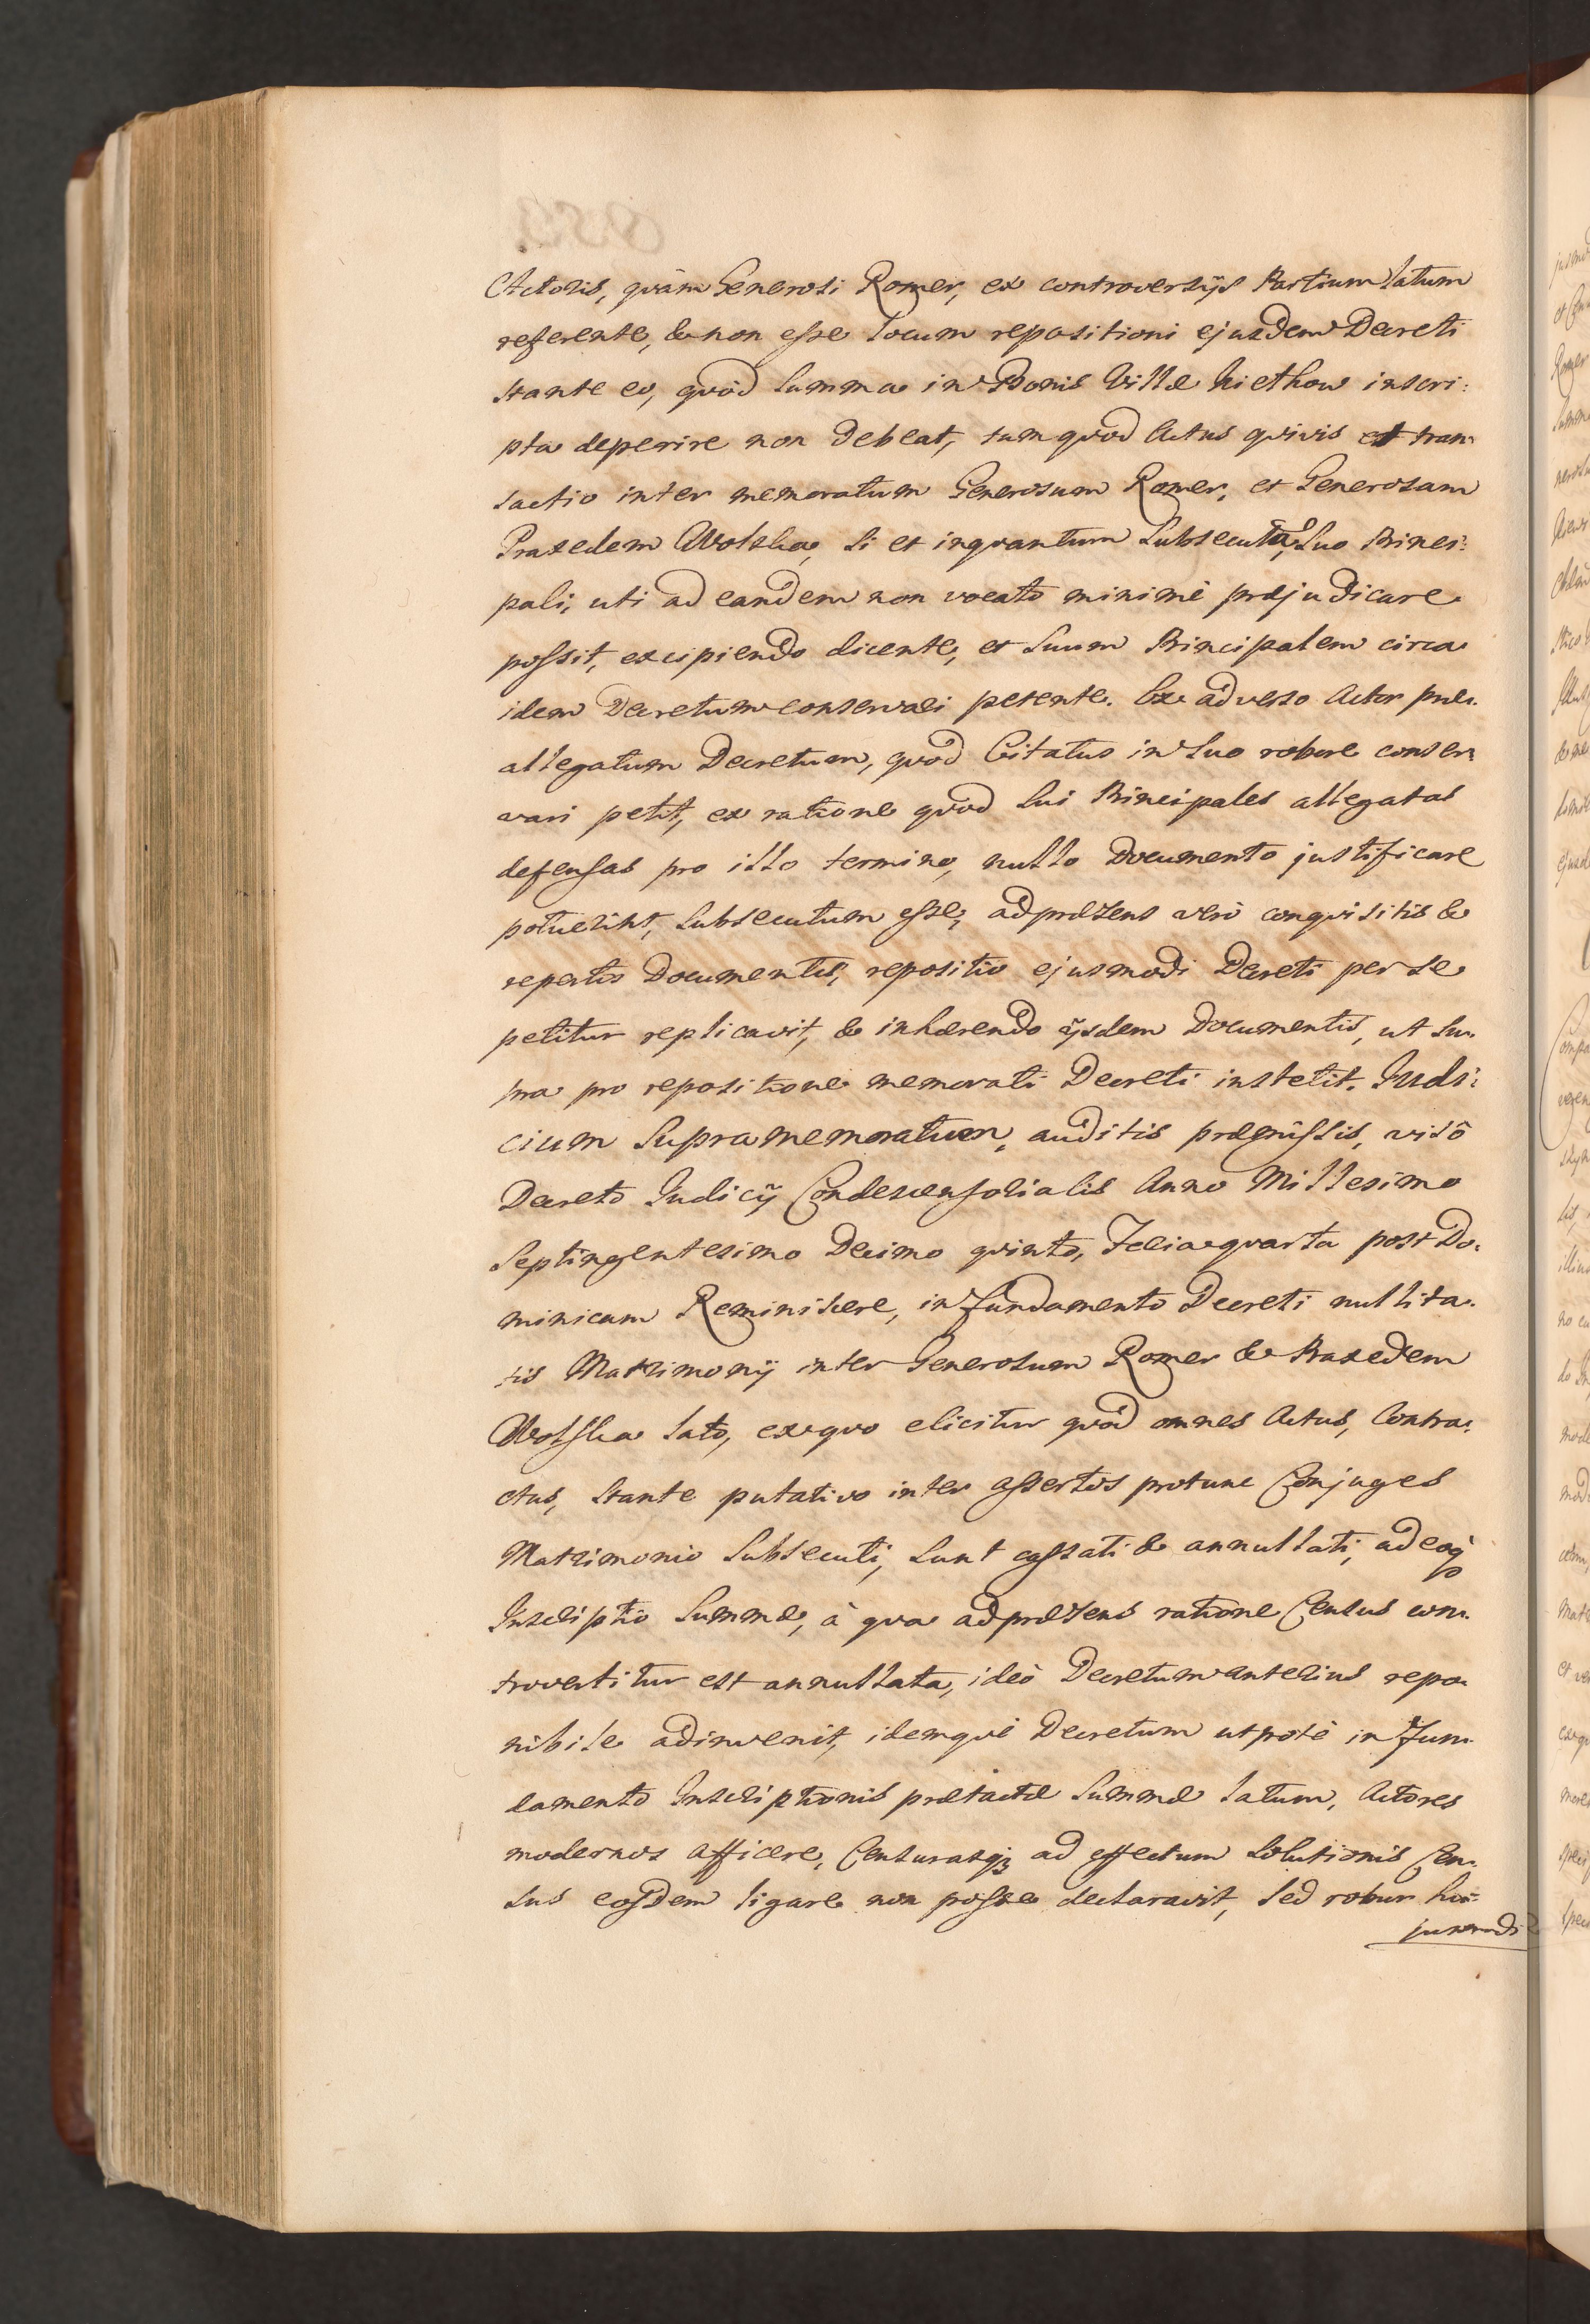 Actoris, quàm Generosi Romer, ex controversijs Partium latum
referente, & non esse locum repositioni ejusdem Decreti
stante eo, quòd Summa in Bonis Villæ Niethow inscri:
pta deperire non debeat, tum quòd Actus quivis et tran:
sactio inter memoratum Generosum Romer, et Generosam
Praxedem Wolska, si et inquantum Subsecuta, Suo Princi:
pali, uti ad eandem non vocato minimè præjudicare
possit, excipiendo dicente, et Suum Principalem circa
idem Decretum conservari petente. Ex adverso Actor præ:
allegatum Decretum, quòd Citatus in Suo robore conser:
vari petit, ex ratione quòd Sui Principales allegatas
defensas pro illo termino, nullo Documento justificare
potuerint, Subsecutum esse, ad præsens verò conquisitis &
repertis Documentis, repositio ejusmodi Decreti per se
petitur replicavit, & inhærendo ijsdem Documentis, ut Su:
pra pro repositione memorati Decreti institit. Judi:
cium Supramemoratum, auditis præmissis, visô
Decreto Judicij Condescensorialis Anno Millesimo
Septingentesimo Decimo quinto, Feria quarta post Do:
minicam Reminiscere, in fundamento Decreti nullita:
tis Matrimonij inter Generosum Romer & Praxedem
Wolska lato, ex quo elicitur quòd omnes Actus, Contra:
ctus, stante putativo inter assertos protunc Conjuges
Matrimonio Subsecuti, sunt cassati & annullati, adeoq
Inscriptio Summæ, à qua ad præsens ratione Census con:
trovertitur est annullata, ideò Decretum anterius repo:
nibile adinvenit, idemque Decretum utpotè in Fun:
damento Inscriptionis prætactæ Summæ latum, Actores
modernos afficere, Censurasq3 ad effectum Solutionis Cen:
sus eosdem ligare non posse declaravit, Sed robur hu:
jusmodi